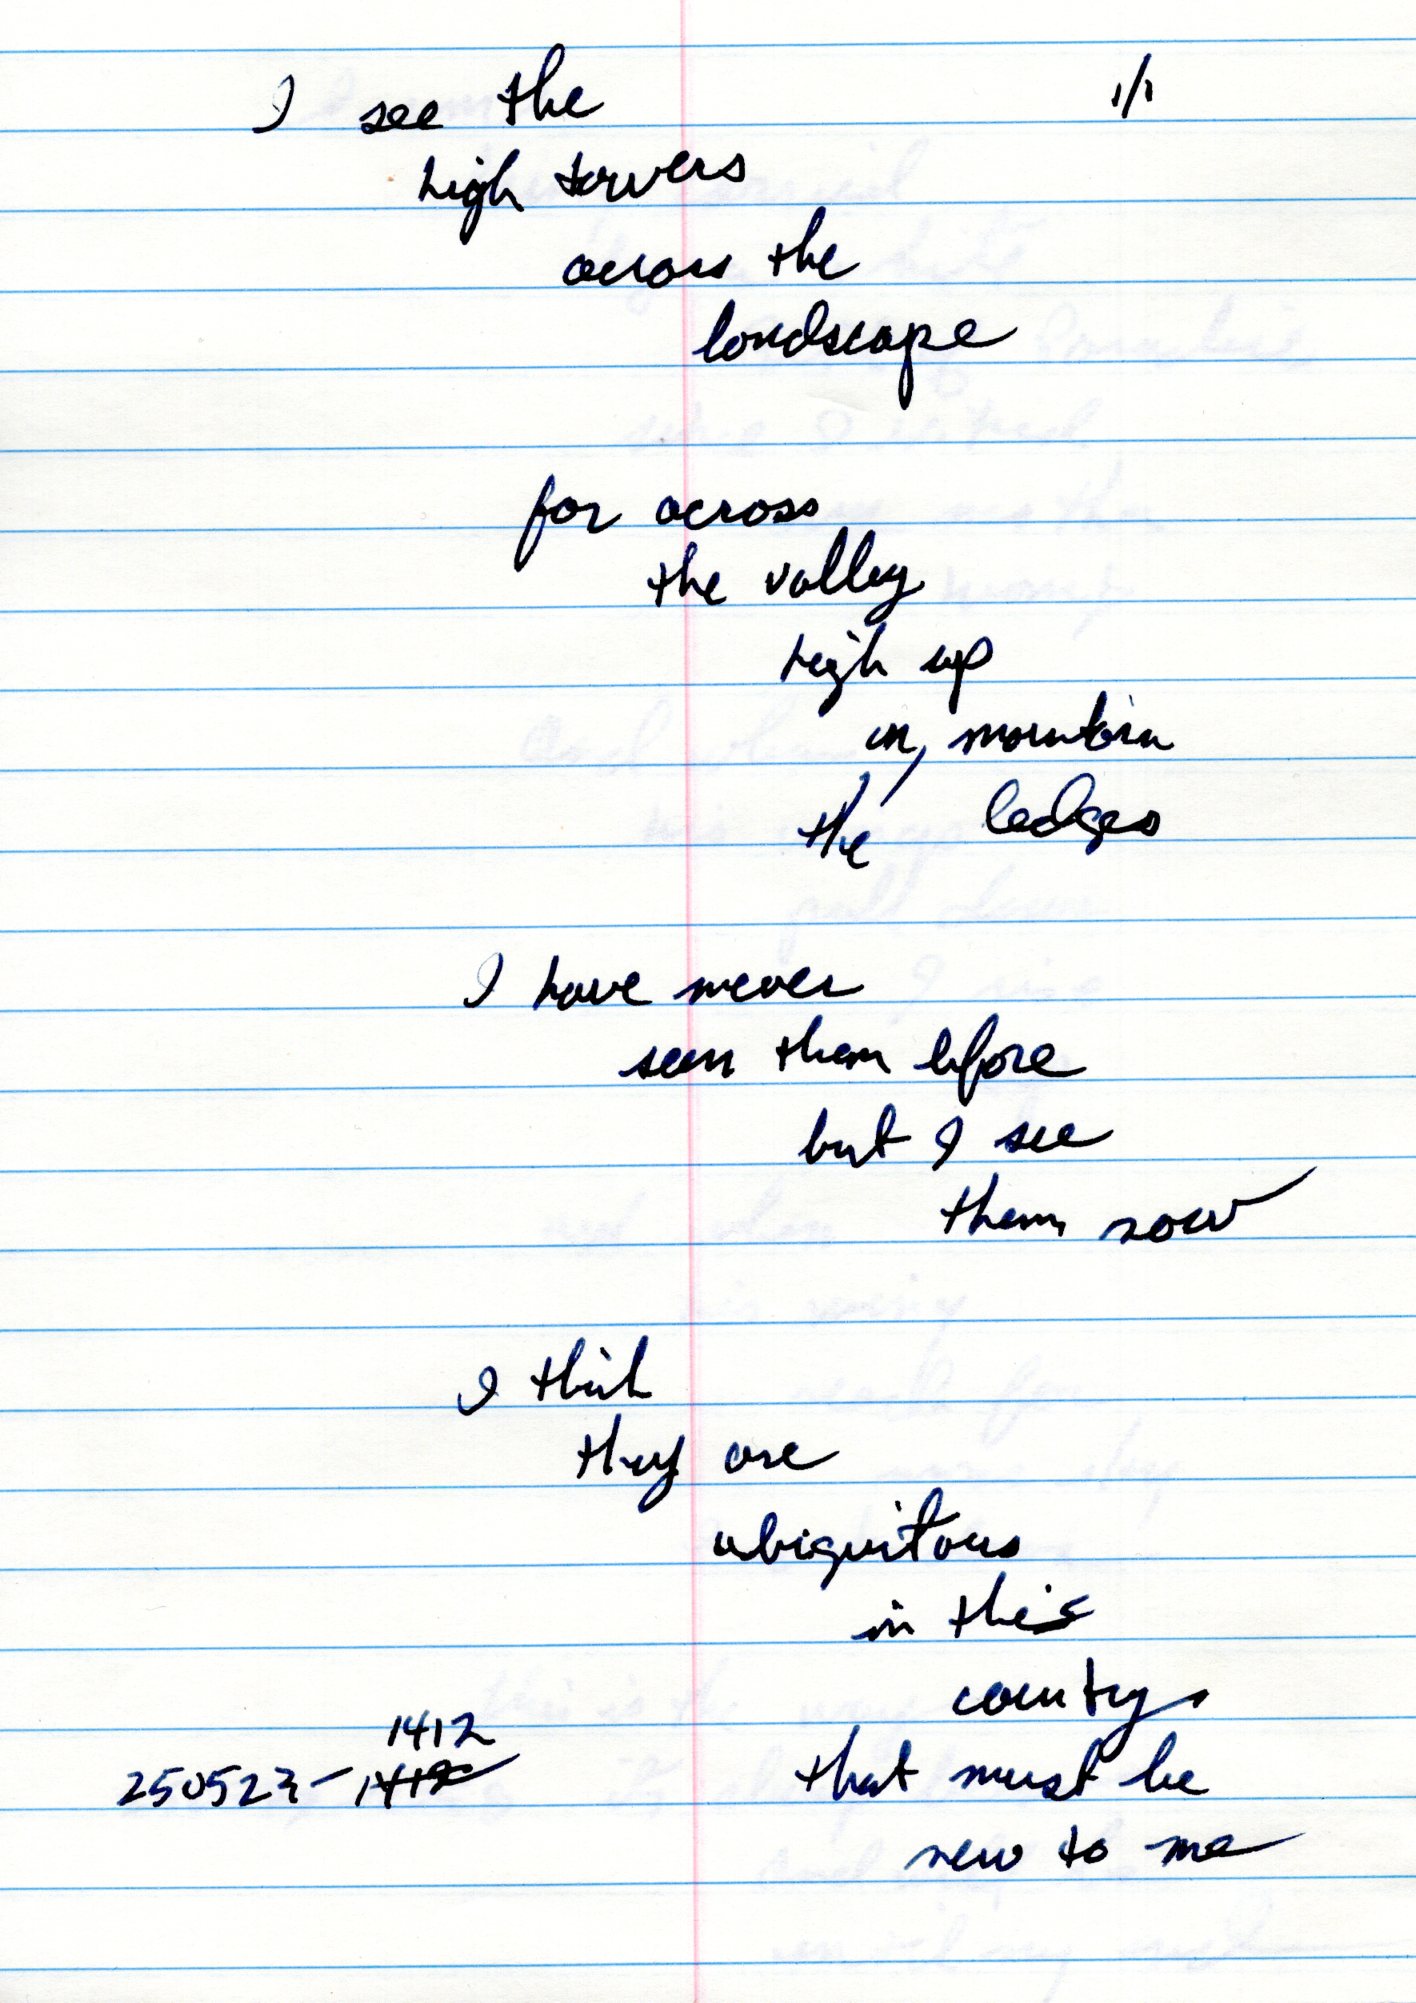 I see the
1/1
high towers
across the
landscape
far across
the valley
high up
in, mountain
the ledges
I have never
seen them before
but I see
them now
I think
they are
ubiquitous
in this
country
that must be
new to me
1412
250523-1412